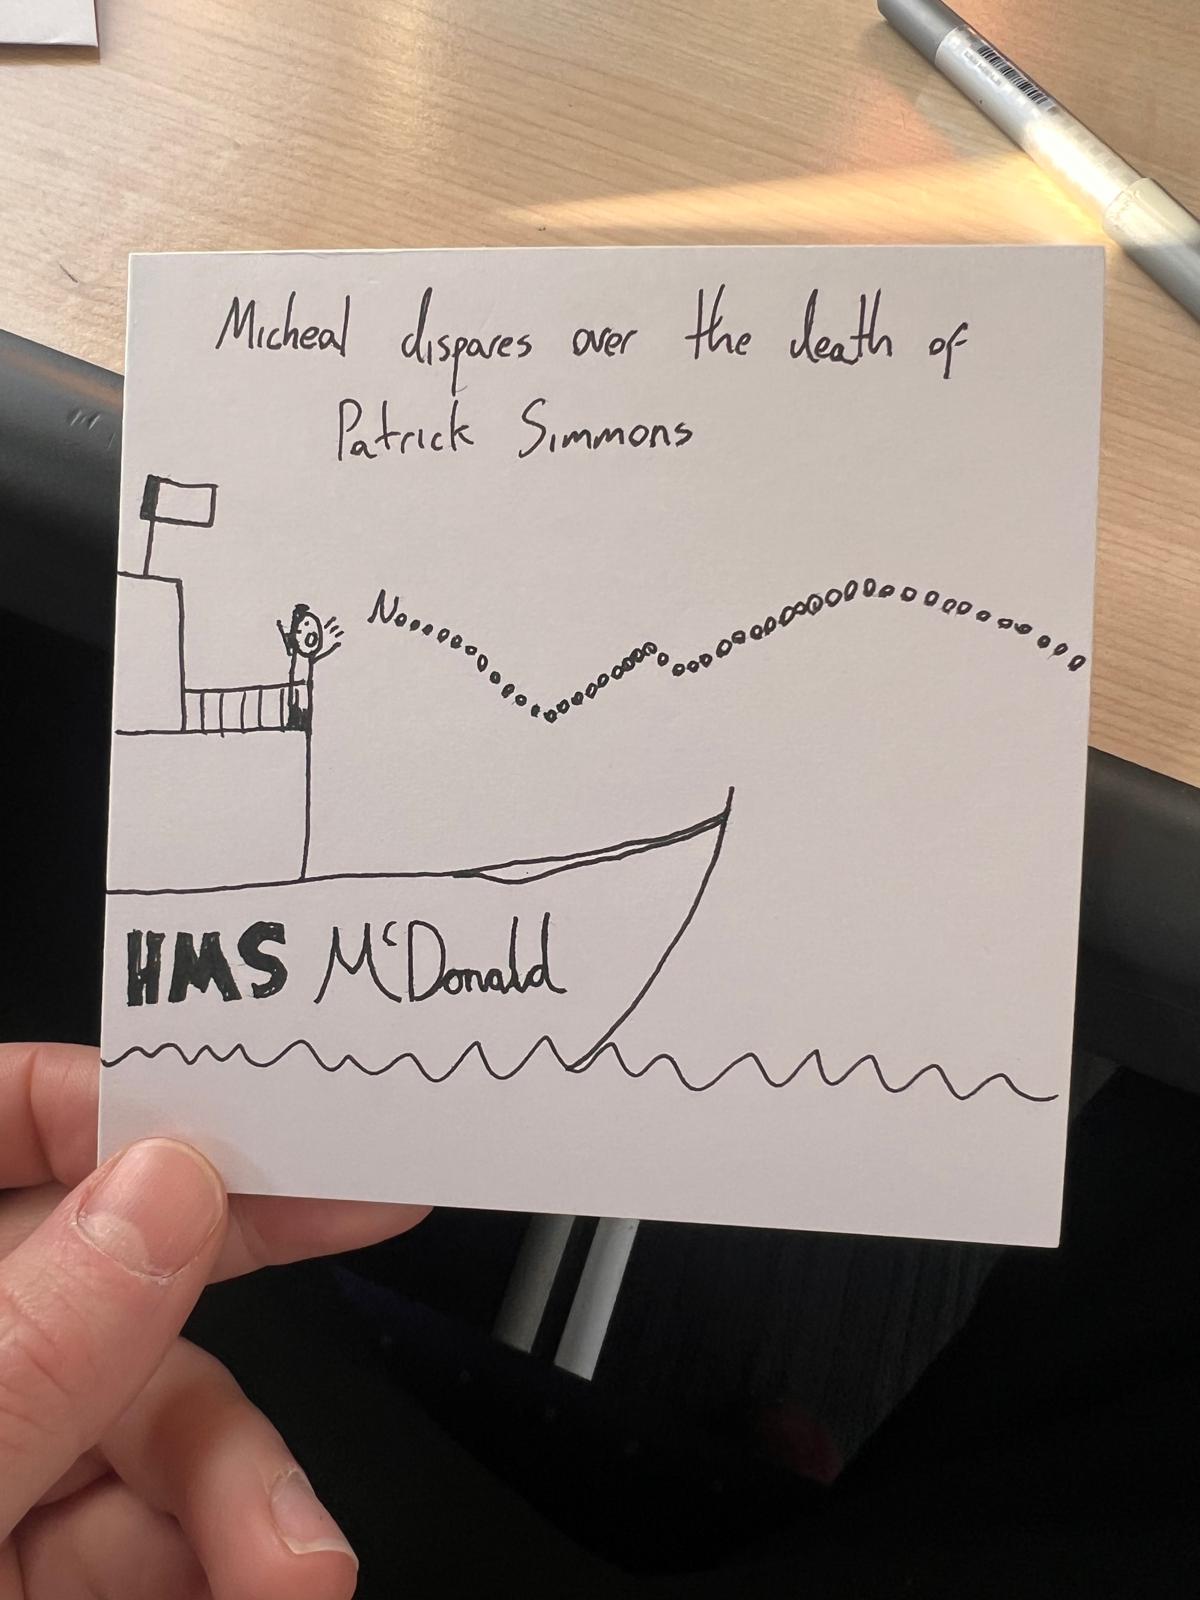 Micheal dispares over the death of
Patrick Simmons
Noooooooooooooooooooooooooooooooooooooooooooooooooooooooooooooooooooo
HMS McDonald